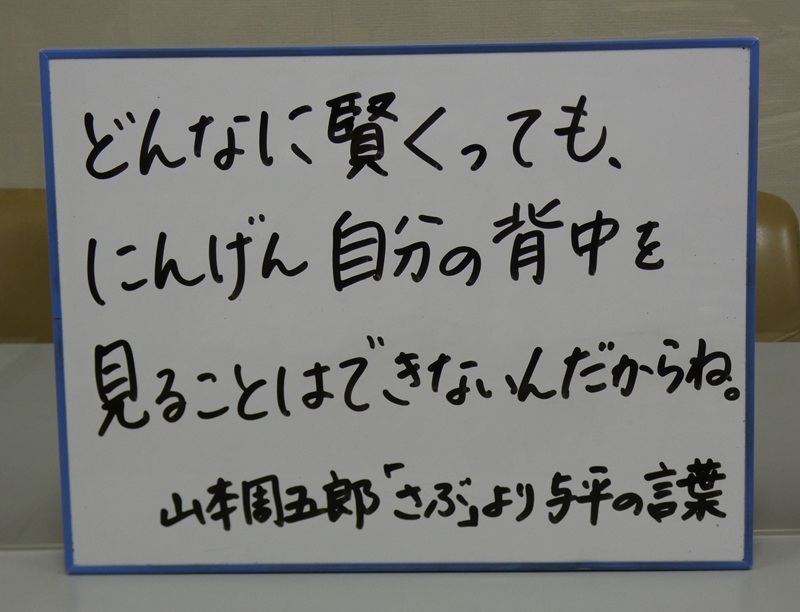 どんなに賢くっても、
にんげん自分の背中を
見ることはできないんだからね。
山本周五郎「さぶ」より与平の言葉